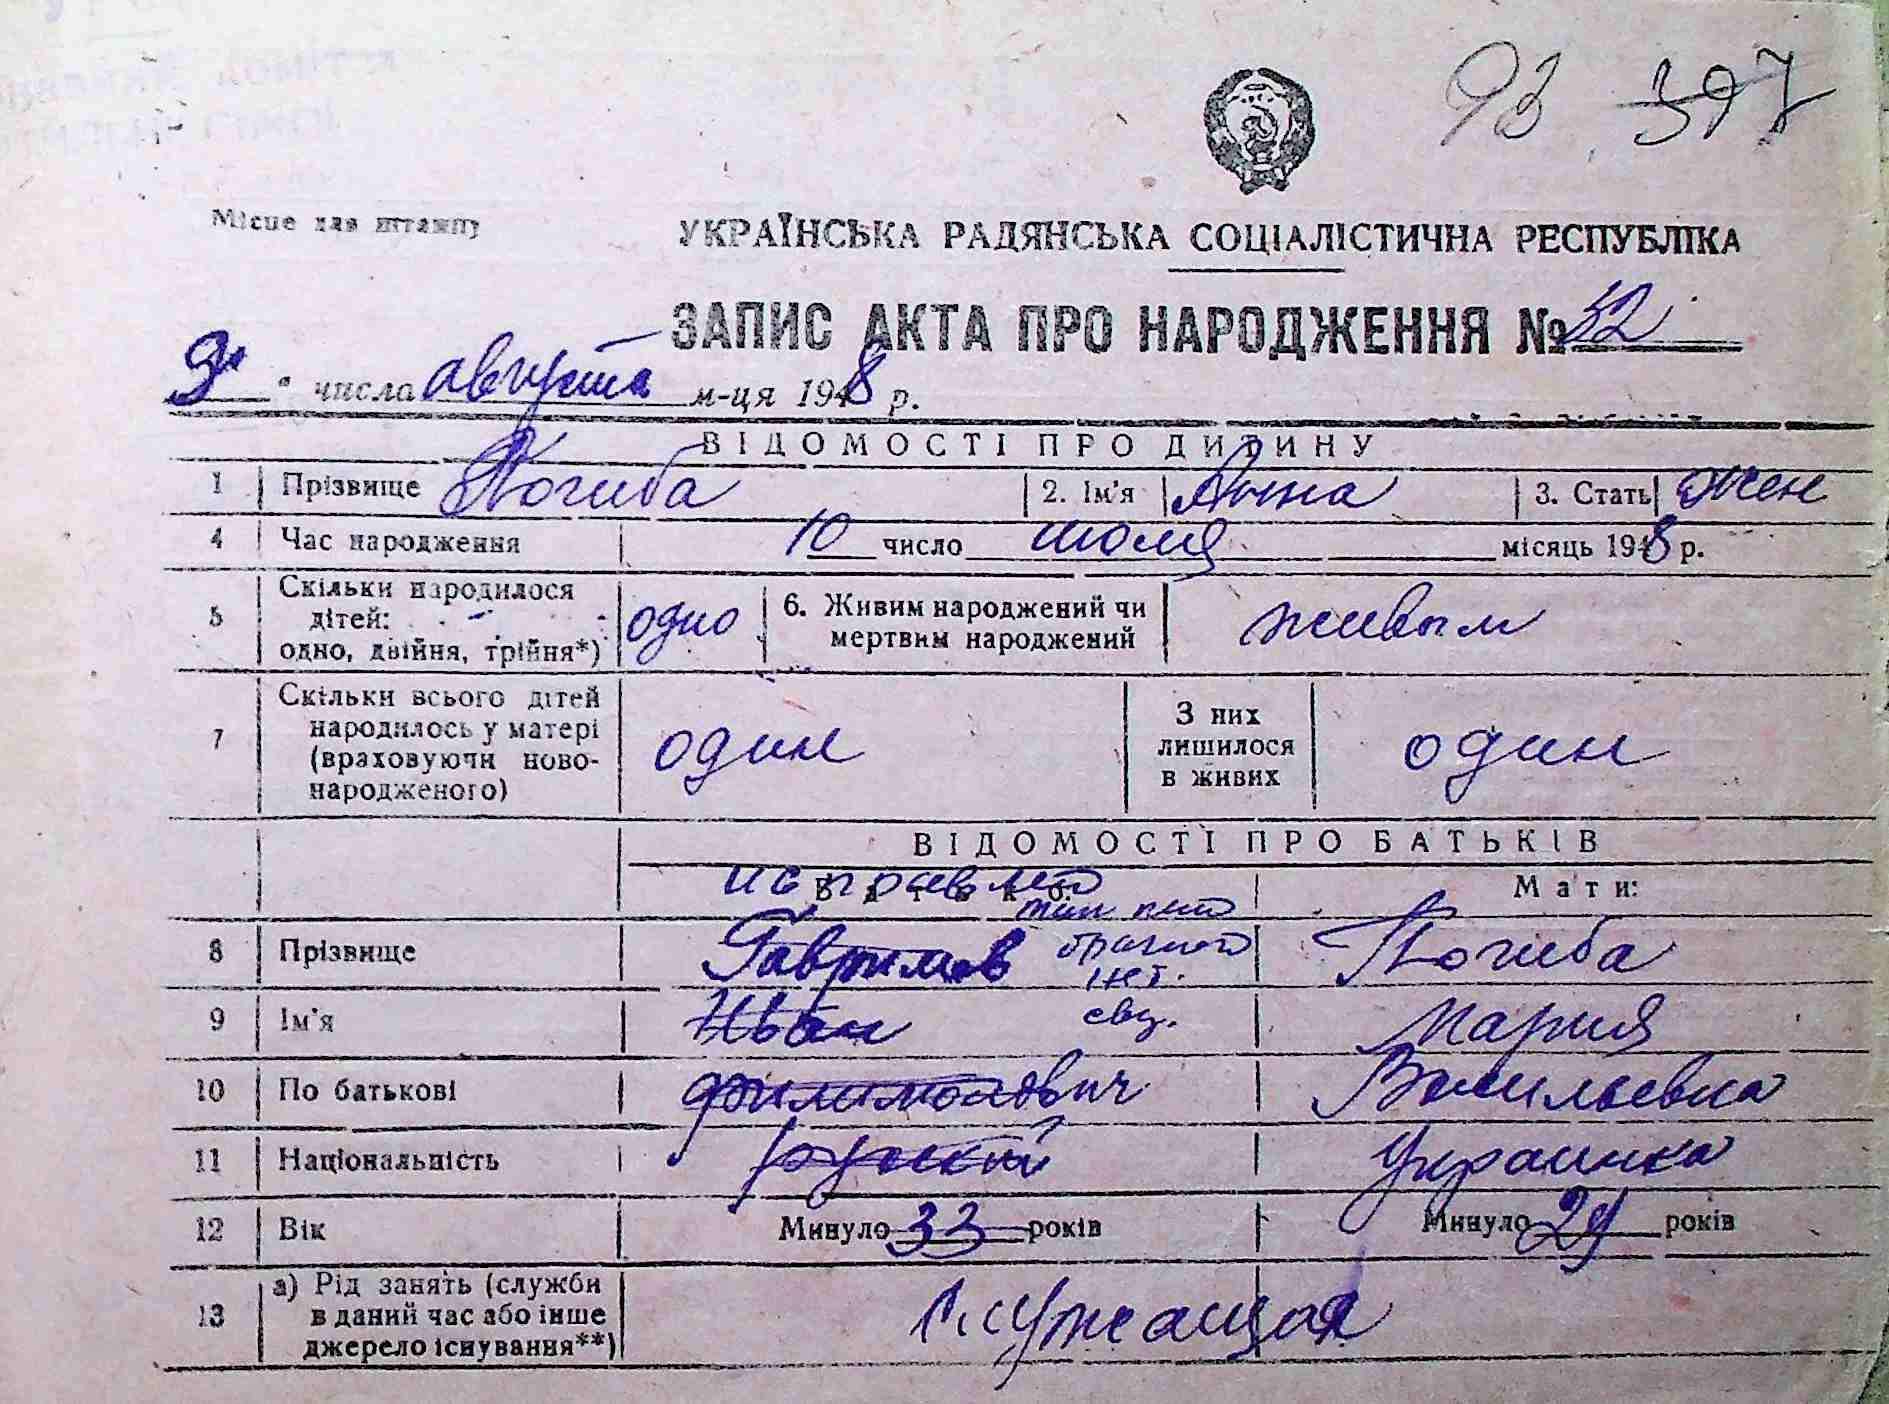 93 397
Місце для штампу
УКРАЇНСЬКА РАДЯНСЬКА СОЦІАЛІСТИЧНА РЕСПУБЛІКА
ЗАПИС АКТА ПРО НАРОДЖЕННЯ № 32
9 " числа августа м-ця 1948 р.
ВІДОМОСТІ ПРО ДИТИНУ
1 Прізвище Погиба 2. Ім'я Анна 3. Стать жен
4 Час народження 10 число июля місяць 1948 р.
5 Скільки народилося дітей: одно, двійня, трійня*) одно 6. Живим народжений чи мертвим народжений живым
7 Скільки всього дітей народилось у матері (враховуючи новонародженого) один З них лишилося в живих один
ВІДОМОСТІ ПРО БАТЬКІВ
исправлено
Батько: Мати:
8 Прізвище Гаврилов Погиба
брачного
9 Ім'я Иван свид. Мария
10 По батькові Филимонович Васильевна
11 Національність руский Украинка
12 Вік Минуло 33 років Минуло 29 років
13 а) Рід занять (служби в даний час або інше джерело існування**) Служащая